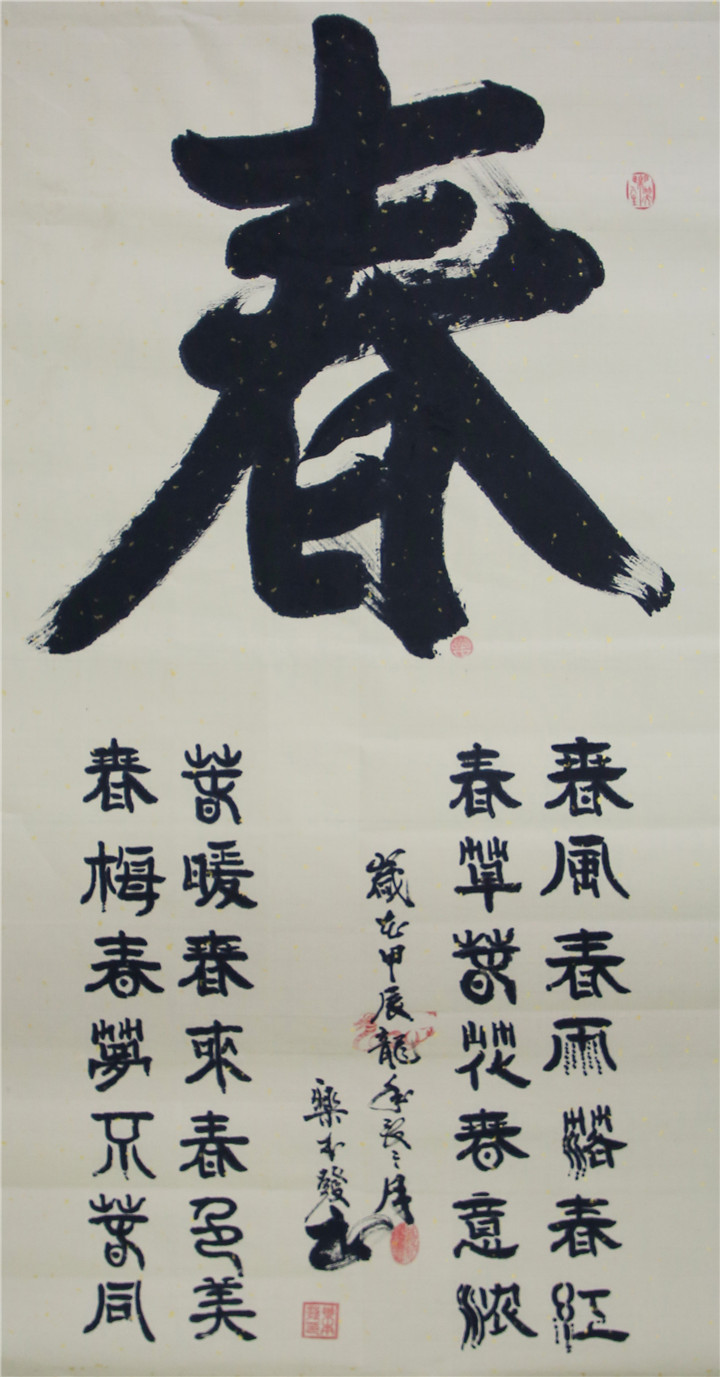 春
春風春雨落春紅
春草春花春意浓
甲辰龍年
本發书
春暖春來春色美
春梅春夢不春同